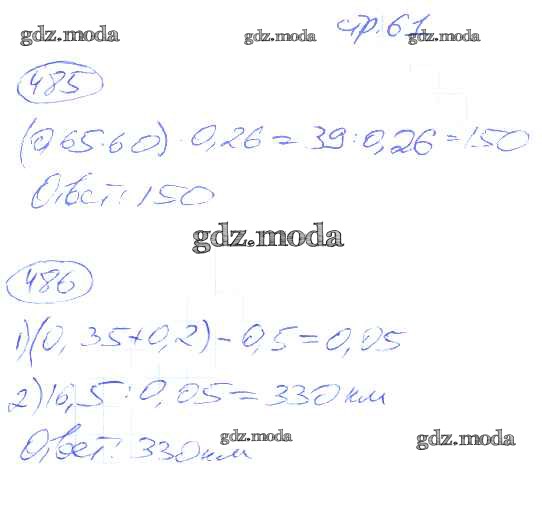 стр. 61
gdz.moda gdz.moda gdz.moda
485
(0,65·60) · 0,26 = 39 : 0,26 = 150
Ответ: 150
gdz.moda
486
1) (0, 35 + 0,2) - 0,5 = 0,05
2) 16,5 : 0,05 = 330 км
Ответ: 330 км
gdz.moda gdz.moda